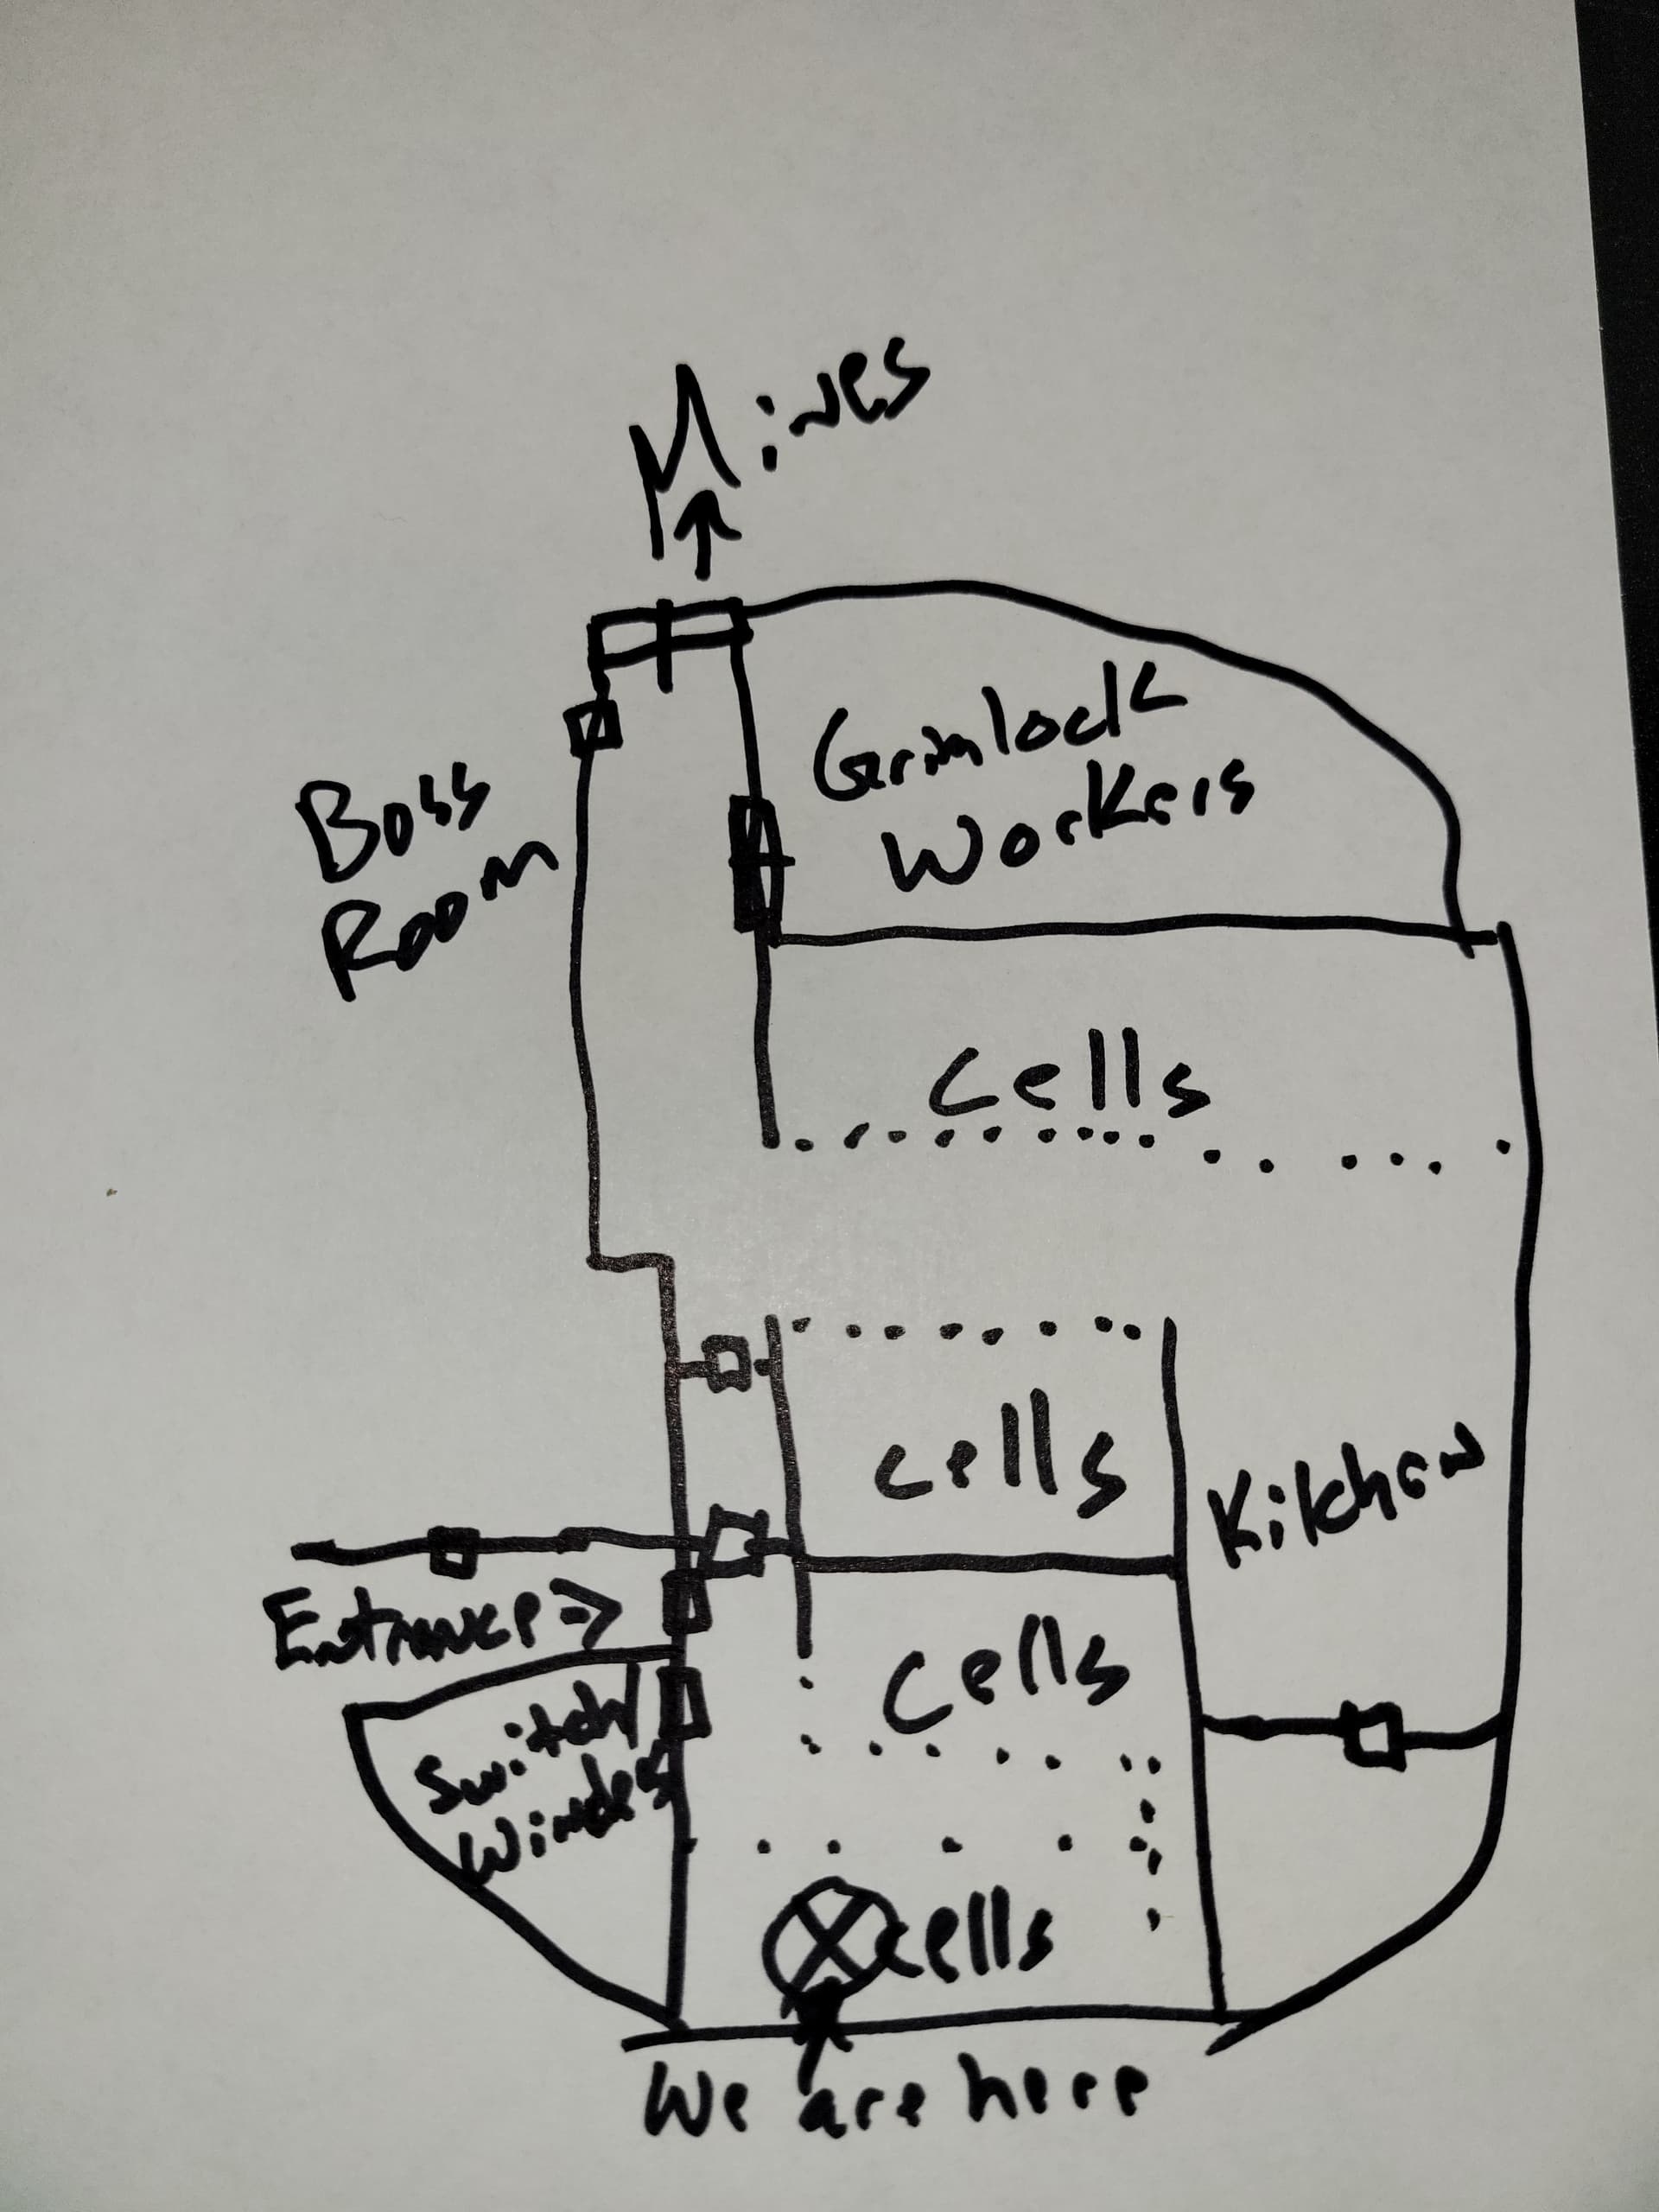 Mines
Grimlock
Workers
Boss
Room
Cells
Cells
Kitchen
Entrance
Cells
Switch/
Windes
Cells
We are here